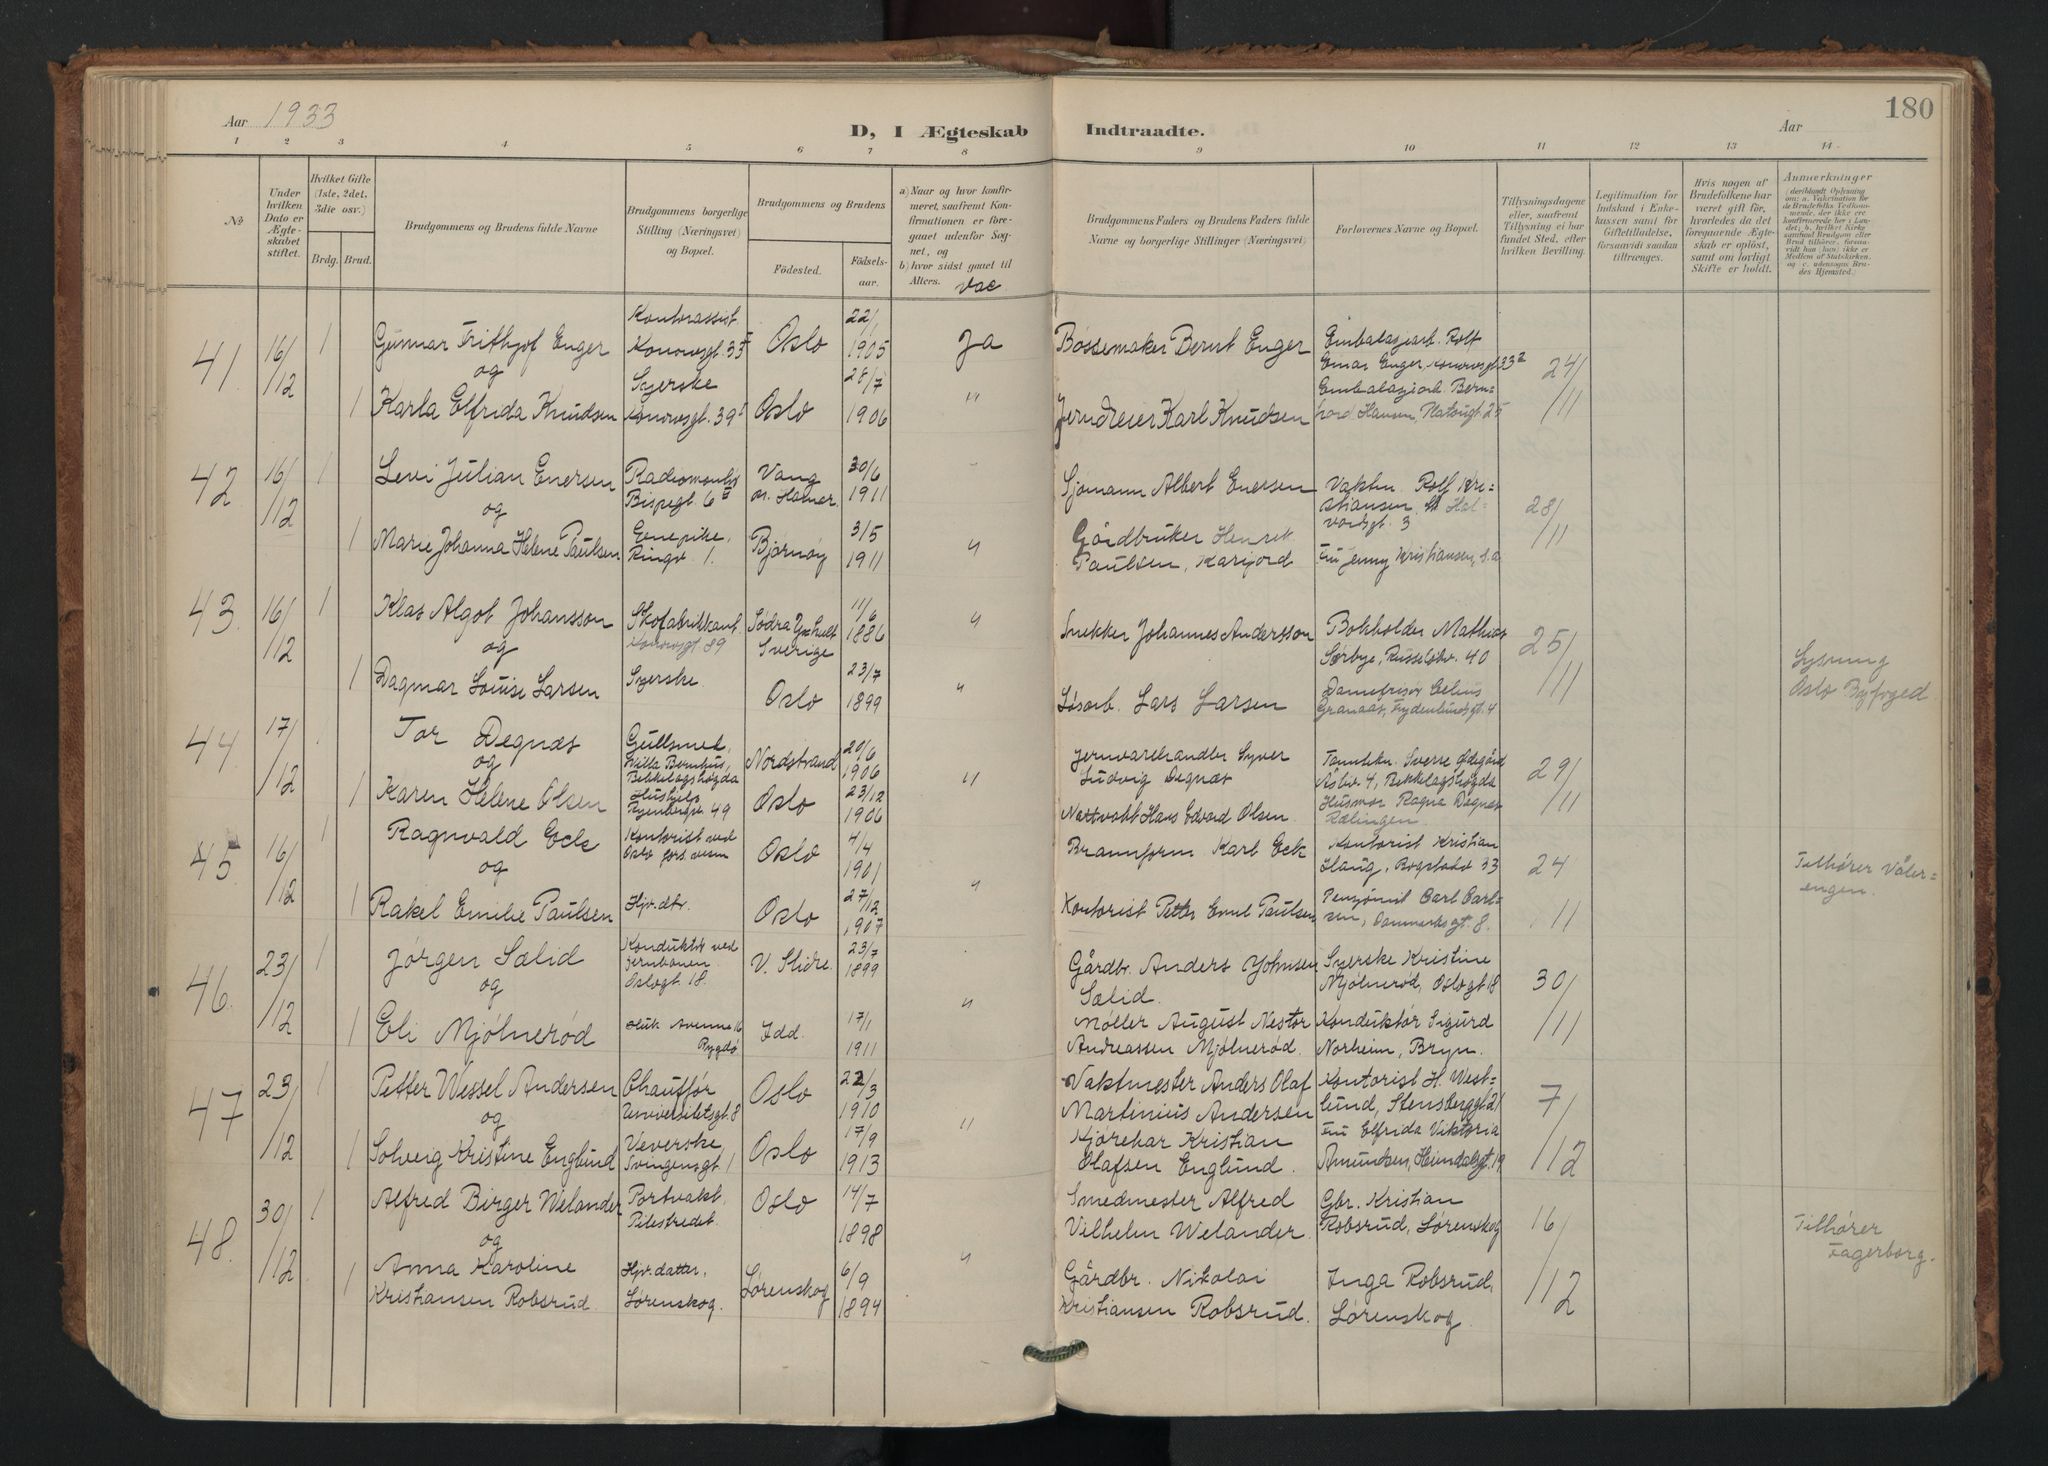 Aar 1933
D, I Ægteskab Indtraadte.
Aar
180
1 2 3 4 5 6 7 8 9 10 11 12 13 14
No.
Under hvilken Dato er Ægteskabet stiftet.
Hvilket Gifte (1ste, 2det, 3die osv.)
Brdg. Brud.
Brudgommens og Brudens fulde Navne
Brudgommens borgerlige Stilling (Næringsvei) og Bopæl.
Brudgommens og Brudens
Fødested. Fødselsaar.
a) Naar og hvor konfirmeret, saafremt Konfirmationen er foregaaet udenfor Sognet, og
b) hvor sidst gaaet til Alters.
vac
Brudgommens Faders og Brudens Faders fulde Navne og borgerlige Stillinger (Næringsvei)
Forlovernes Navne og Bopæl.
Tillysningsdagene eller, saafremt Tillysning ei har fundet Sted, efter hvilken Bevilling.
Legitimation for Indskud i Enkekassen samt for Giftetilladelse, forsaavidt saadan tiltrænges.
Hvis nogen af Brudefolkene har været gift før, hvorledes da det foregaaende Ægteskab er opløst, samt om lovligt Skifte er holdt.
Anmerkninger
41. 16/12 1 Gunnar Frithjof Enger
Kontorassist. Konowsgt. 33 I
Oslo 22/1 1905
Ja
Bøssemaker Bernt Enger
Embalasjearb. Rolf
Einar Enger, Konowsgt 33 2
24/11
og
1 Karla Elfrida Knudsen
Syerske
Konowsgt. 39 I
Oslo 28/7 1906
"
Jerndreier Karl Knudsen
Hansen, Platougt. 25
42 16/12 1 Levi Julian Enersen
Bispegt 6 II
Vang
Hamar. 30/6 1911
Sjømann Albert Enersen
Vaktm. Rolf Kri=
stiansen, St Hal=
vardsgt. 3
28/11
og
1 Marie Johanna Helene Paulsen
Enepike,
Ringv. 1.
Bjørnøy 3/5 1911
"
Gårdbruker Henrik
Paulsen,
Fru Jenny Kristiansen, s.a
43. 16/12 1 Klas Algot Johansson
Skofabrikkant
Konowsgt 89
Södra
Sverige 11/6 1886
"
Snekker Johannes Andersson
Bokholder Mathias
Sørbye, 40
25/11
og
1 Dagmar Louise Larsen
Syerske.
Oslo 23/7 1899
"
Løsarb. Lars Larsen
Damefrisør
Granaas, Frydenlundsgt. 4
Lysning
Oslo Byfoged
44. 17/12 1 Tor Degnæs
Gullsmed,
Villa
Bekkelagshøgda
Nordstrand 20/6 1906
Jernvarehandler Syver
Ludvig Degnæs
Tanntekn. Sverre Ødegård
4, Bekkelagshøgda
29/11
og
1 Karen Helene Olsen
Hushjelp
49
Oslo 23/12 1906
"
Nattvakt Hans Edvard Olsen.
Husmor Ragna Degnæs
Rælingen.
45. 16/12 1 Ragnvald Eck
Kontorist ved
Oslo
Oslo 4/4 1901
Brannform. Karl Eck
Kontorist Kristian
Haug, Bogstadv 33
24
Tilhører Våler=
engen.
og
1 Rakel Emilie Paulsen
Hjv. dtr.
Oslo 27/12 1907
"
Kontorist Petter Emil Paulsen
Pensjonist Carl Carl=
sen, Danmarksgt. 8.
/11
46. 23/12 1 Jørgen Sælid
Konduktør ved
jernbanen
Oslogt 18.
V. Slidre. 23/7 1899
Gårdbr. Anders Johnsen
Sælid.
Syerske Kristine
Mjølnerød, Oslogt 18
30/11
og
1 Eli Mjølnerød
16
Bygdø
Idd. 17/1 1911
"
Møller August Nestor
Andreassen Mjølnerød.
Konduktør Sigurd
Norheim, Bryn.
47. 23/12 1 Petter Wessel Andersen
Chauffør
Universitetsgt. 8
Oslo 22/3 1910
Vaktmester Anders Olaf
Martinius Andersen
Kontorist H. West=
lund, Stensberggt 21
7/12
og
1 Solveig Kristine Englund
Veverske
Svingensgt 1
Oslo 17/9 1913
"
Kjørekar Kristian
Olafsen Englund.
Fru Elfrida Viktoria
Amundsen, Heimdalsgt. 19
48. 30/12 1 Alfred Birger Welander
Portvakt,
Pilestredet.
Oslo 14/7 1898
Smedmester Alfred
Vilhelm Welander.
Gbr. Kristian
Robsrud, Lørenskog
16/12
Tilhører
Fagerborg.
og
1 Anna Karoline
Kristiansen Robsrud.
Hjv. datter,
Lørenskog.
Lørenskog 6/9 1894
"
Gårdbr. Nikolai
Kristiansen Robsrud.
Inga Robsrud,
Lørenskog.